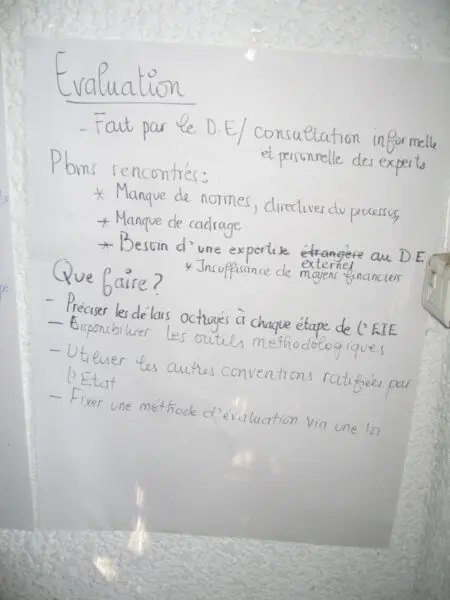 Evaluation
- Fait par le D.E/ consultation informelle
et personnelle des experts
Pbms rencontrés:
* Manque de normes, directives du processus,
* Manque de cadrage
* Besoin d'une expertise étrangère au DE
externe
* Insuffisance de moyens financiers
Que faire?
- Préciser les délais octroyés à chaque étape de l'EIE
- Disponibiliser les outils méthodologiques
- Utiliser les autres conventions ratifiées par
l'Etat
- Fixer une méthode d'évaluation via une